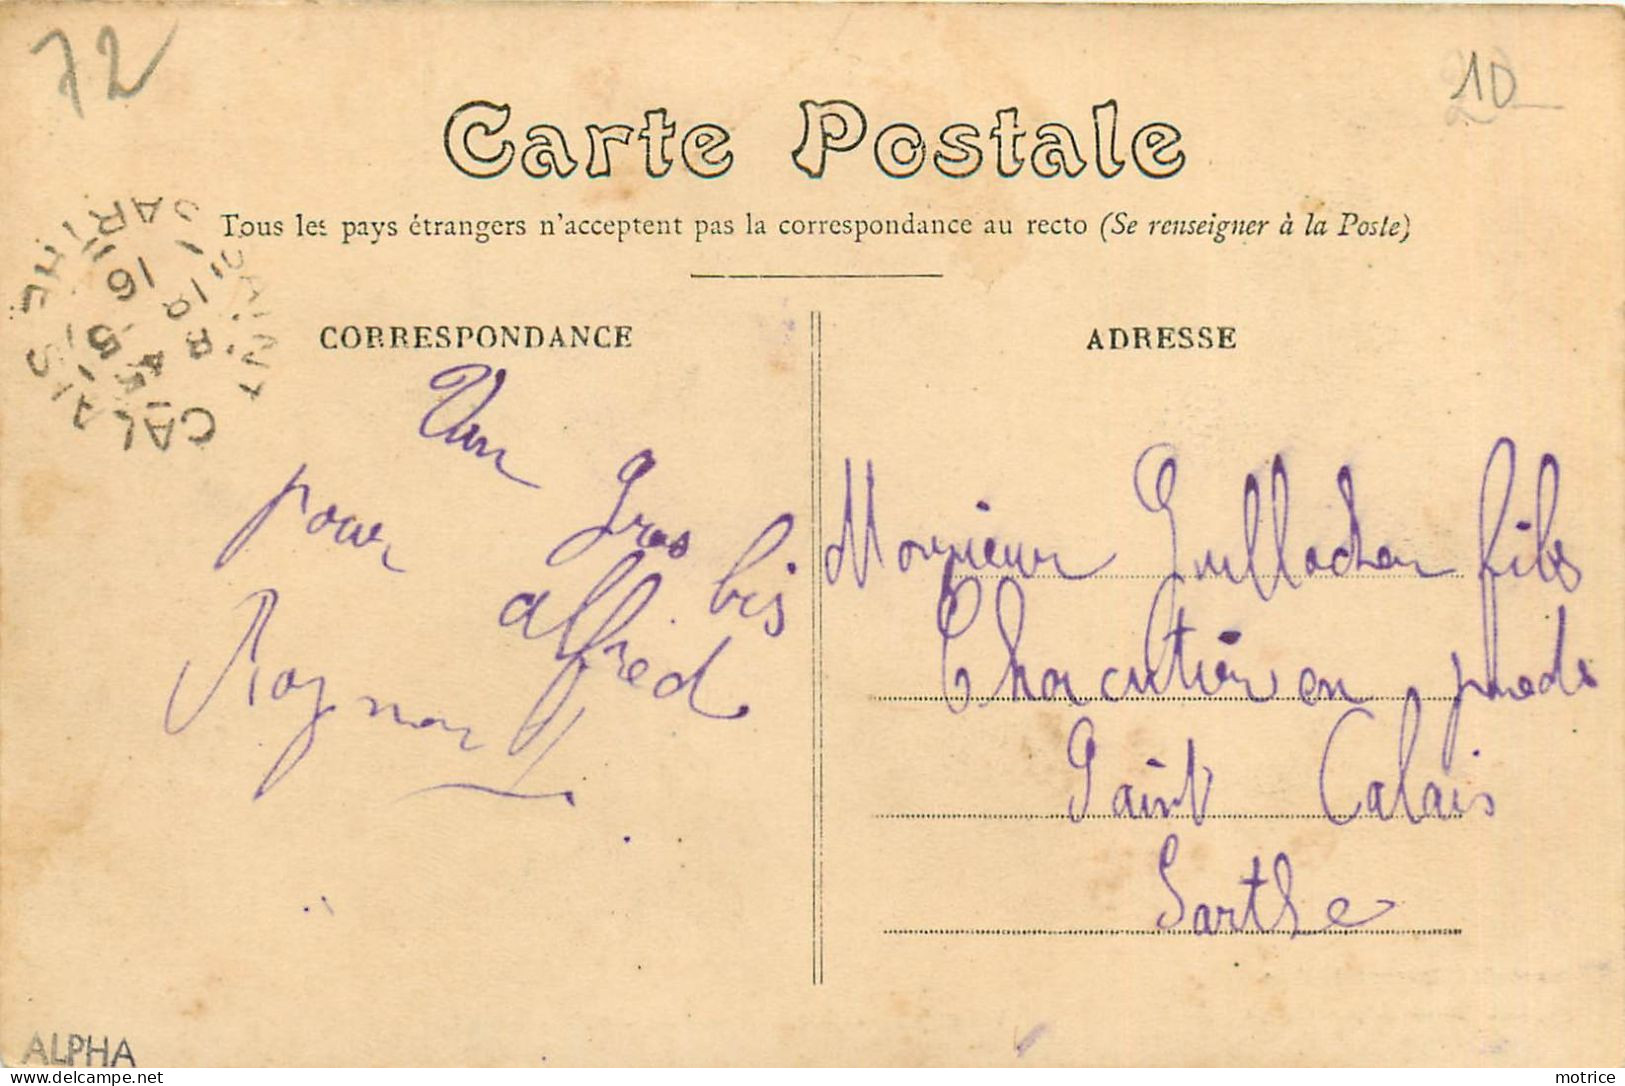 72
10
Carte Postale
Tous les pays étrangers n'acceptent pas la correspondance au recto (Se renseigner à la Poste)
CORRESPONDANCE
Un gros bis
pour alfred
ADRESSE
Monsieur fils
en
Saint Calais
Sarthe
CALAIS
SARTHE
16
ALPHA
motrice